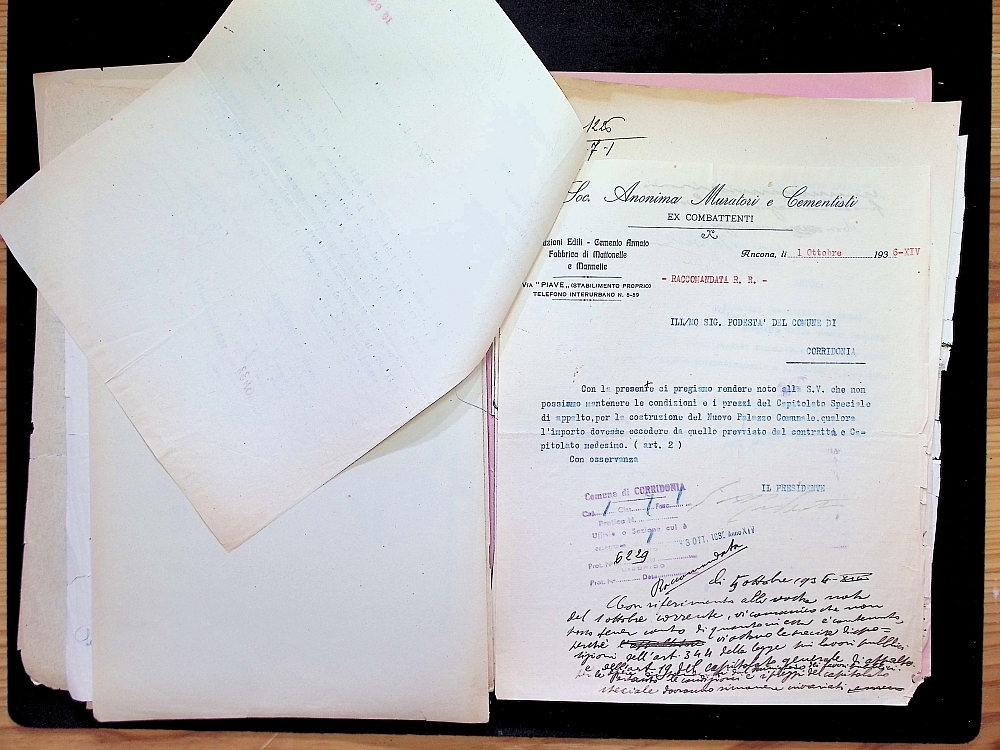 1226
7-1
Soc. Anonima Muratori e Cementisti
EX COMBATTENTI
zioni Edili - Cemento Armato
Fabbrica di Mattonelle
e Marmette
VIA "PIAVE„ (STABILIMENTO PROPRIO)
TELEFONO INTERURBANO N. 5-59
Ancona, li 1 Ottobre 1936-XIV
- RACCOMANDATA R. R. -
ILL/MO SIG. PODESTA' DEL COMUNE DI
CORRIDONIA
Con la presente ci pregiamo rendere noto alla S.V. che non
possiamo mantenere le condizioni e i prezzi del Capitolato Speciale
di appalto,per la costruzione del Nuovo Palazzo Comunale,qualora
l'importo dovesse eccedere da quello previsto dal contratto e Ca-
pitolato medesimo. ( art. 2 )
Con osservanza
IL PRESIDENTE
Comune di CORRIDONIA
Cat. 1 Clas. 7 Fasc. 1
Pratica N.
Ufficio o Sezione cui è
3 OTT. 193 Anno XIV
Prot. N. 6229
Prot. N. Data
Raccomandata
di 5 ottobre 1936-XIV
Con riferimento alla vostra nota
del 1 ottobre corrente, vi comunico che non
posso tener conto di quanto in essa è contenuto,
perchè vi ostano le precise dispo-
sizioni dell'art. 344 della legge sui lavori pubblici
e dell'art. 19 del capitolato generale di appalto
le condizioni e i prezzi del capitolato
speciale dovranno rimanere invariati